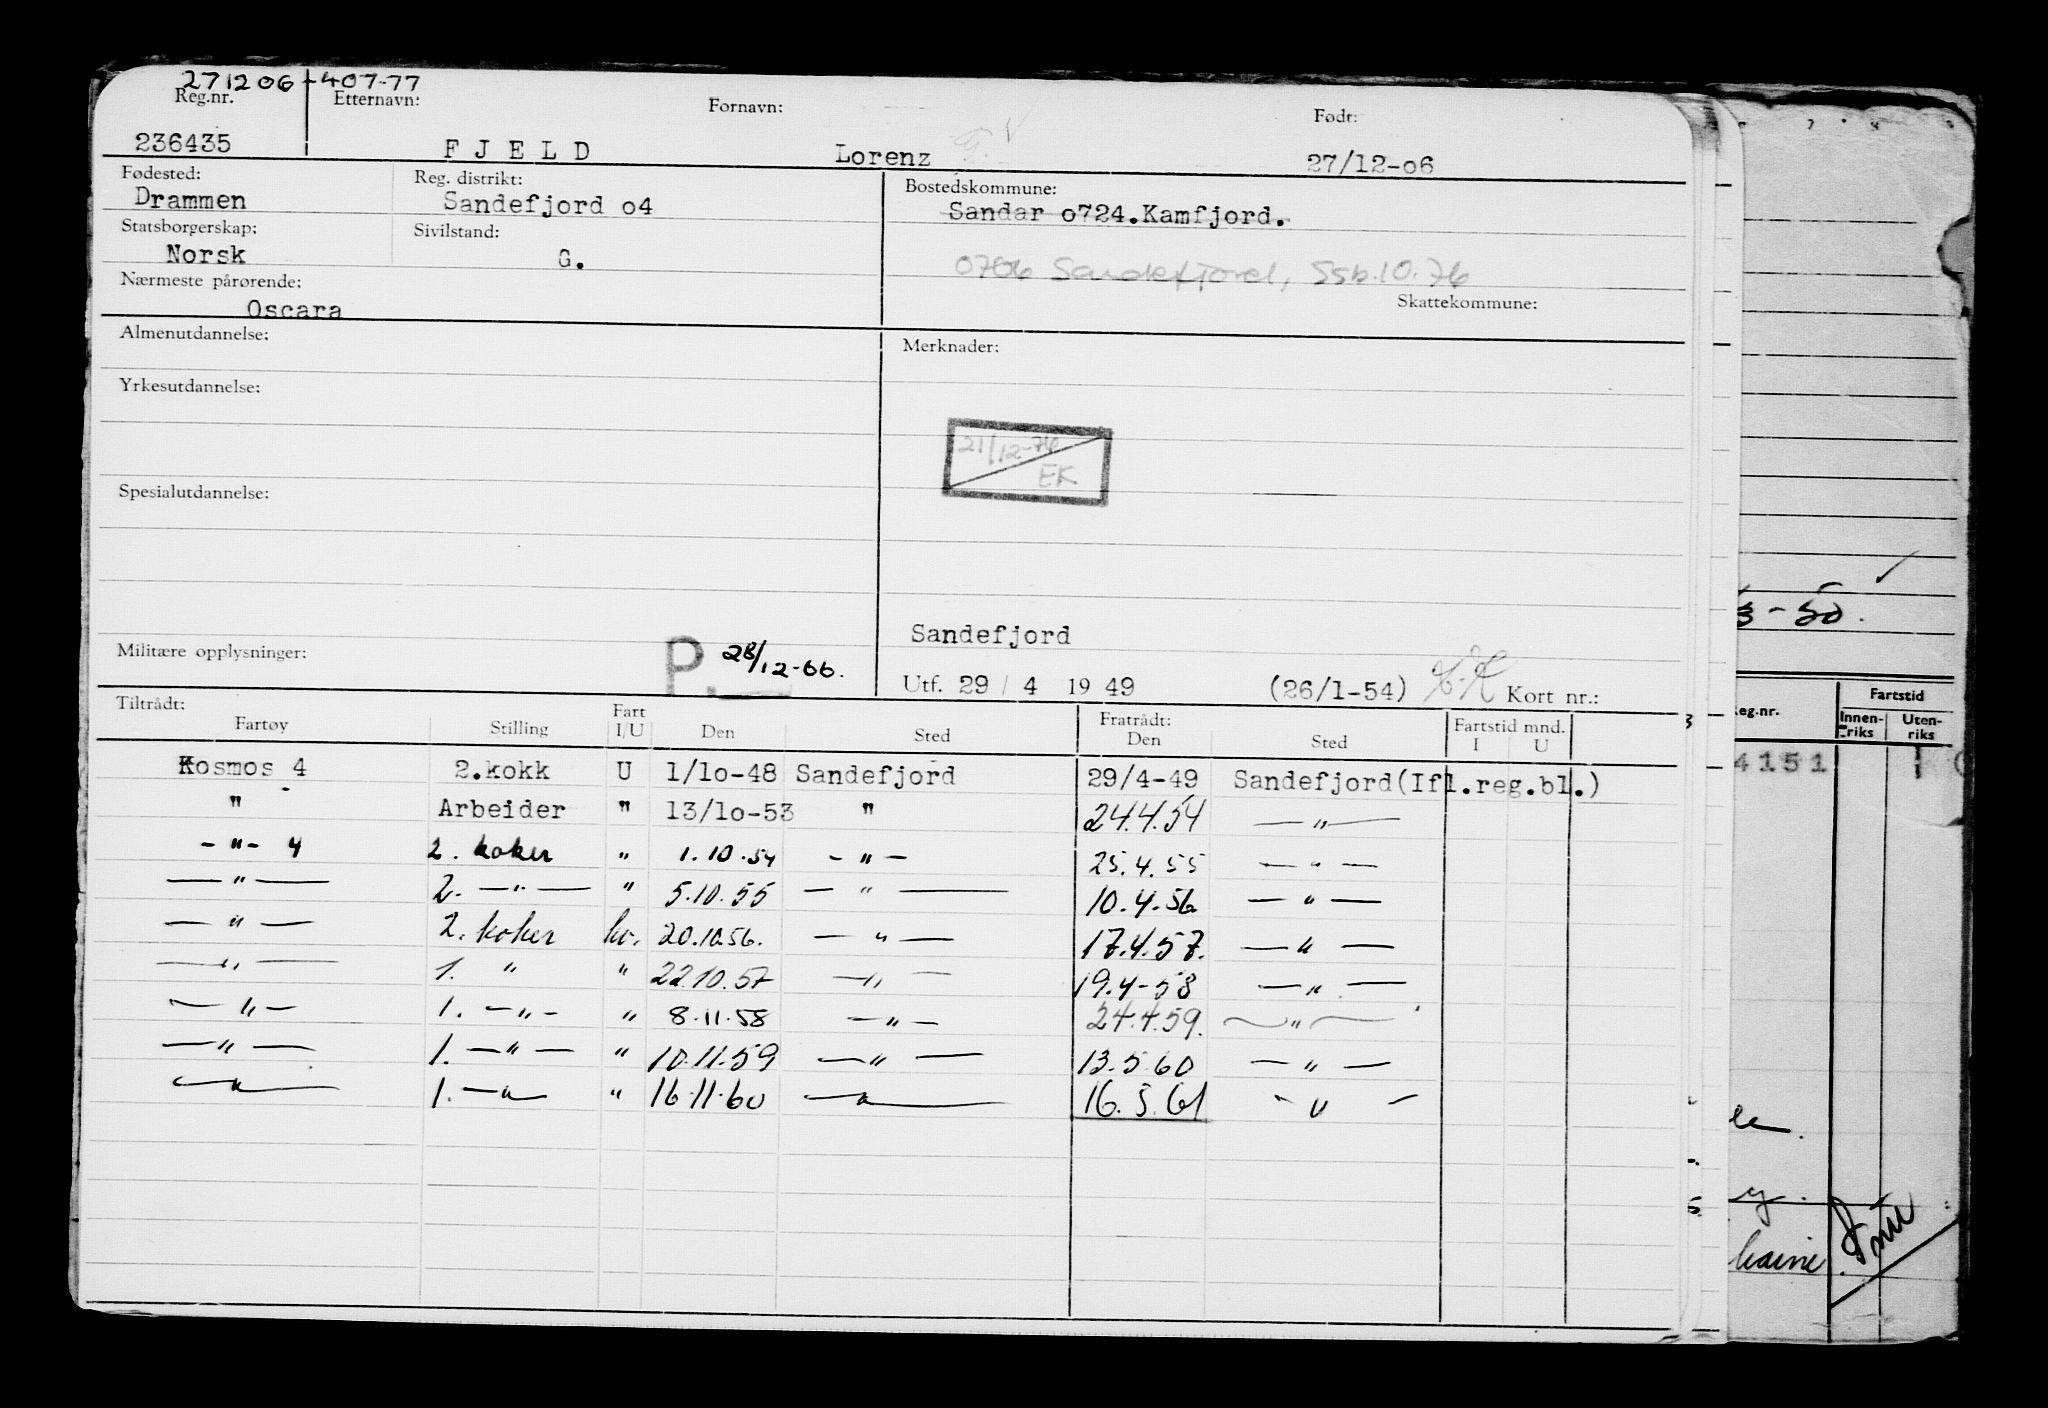 271206-407-77
Reg.nr. Etternavn: Fornavn: Født:
236435 FJELD Lorenz 27/12-o6
Fødested: Reg. distrikt: Bostedskommune:
Drammen Sandefjord o4 Sandar o724.Kamfjord.
Statsborgerskap: Sivilstand:
Norsk G. 0706 Sandefjord, Ssb.10.76
Nærmeste pårørende: Skattekommune:
Oscara
Almenutdannelse: Merknader:
Yrkesutdannelse:
21/12-76
EK
Spesialutdannelse:
Sandefjord
Militære opplysninger: P. 28/12-66.
Utf. 29 / 4 19 49 (26/1-54) Kort nr.:
Tiltrådt: Fratrådt:
Fartøy Stilling Fart I/U Den Sted Den Sted Fartstid mnd. I U
Kosmos 4 2.kokk U 1/1o-48 Sandefjord 29/4-49 Sandefjord(Ifl.reg.bl.)
" Arbeider " 13/1o-53 " 24.4.54 — " —
- " - 4 2. koker " 1.10.54 - " - 25.4.55 — " —
— " — 2. — " — " 5.10.55 — " — 10.4.56 — " —
— " — 2. koker ko. 20.10.56. — " — 17.4.57. — " —
— " — 1. " " 22.10.57 — " — 19.4-58 — " —
— " — 1. — " - " 8.11.58 — " — 24.4.59. — " —
— " — 1. — " — " 10.11.59 — " — 13.5.60 — " —
— " — 1. — " — " 16.11.60 — " — 16.5.61 - " -
3-50.
Reg.nr. Fartstid
Innen-riks Uten-riks
4151